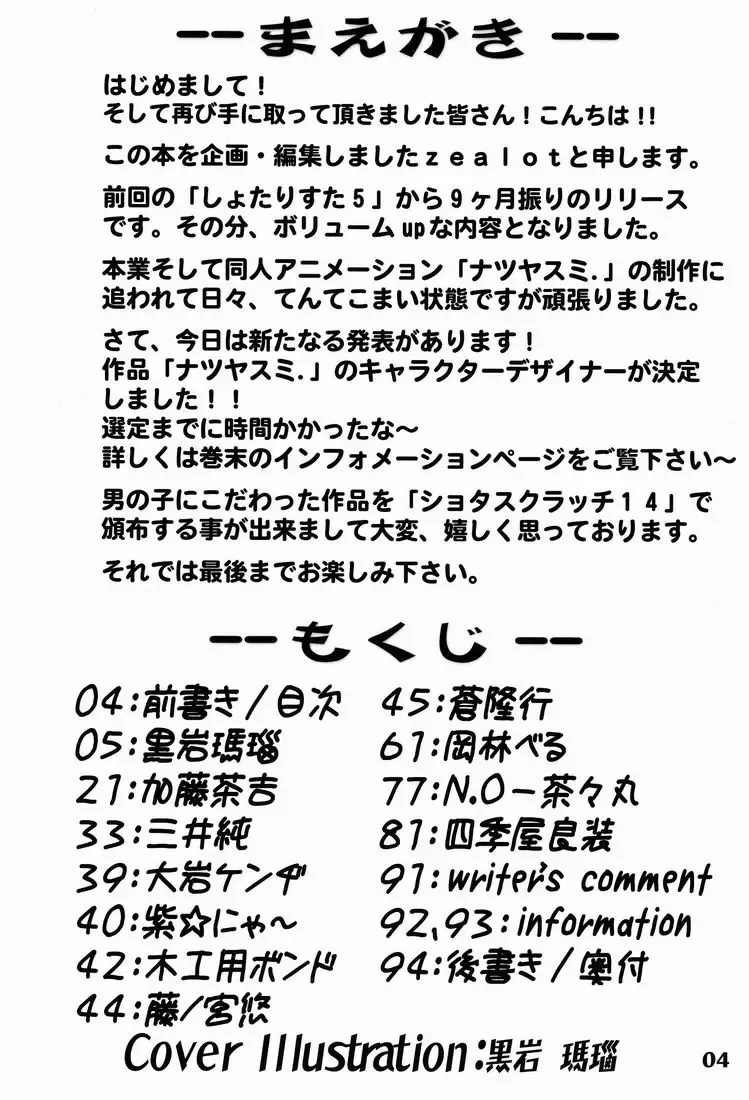 --まえがき--
はじめまして！
そして再び手に取って頂きました皆さん！こんちは!!
この本を企画・編集しましたｚｅａｌｏｔと申します。
前回の「しょたりすた５」から９ヶ月振りのリリース
です。その分、ボリュームupな内容となりました。
本業そして同人アニメーション「ナツヤスミ.」の制作に
追われて日々、てんてこまい状態ですが頑張りました。
さて、今日は新たなる発表があります！
作品「ナツヤスミ.」のキャラクターデザイナーが決定
しました！！
選定までに時間かかったな～
詳しくは巻末のインフォメーションページをご覧下さい～
男の子にこだわった作品を「ショタスクラッチ１４」で
頒布する事が出来まして大変、嬉しく思っております。
それでは最後までお楽しみ下さい。
--もくじ--
04:前書き/目次
05:黒岩瑪瑙
21:加藤茶吉
33:三井純
39:大岩ケンヂ
40:紫☆にゃ～
42:木工用ボンド
44:藤ノ宮悠
45:蒼隆行
61:岡林べる
77:N.O－茶々丸
81:四季屋良装
91:writer's comment
92,93:information
94:後書き/奥付
Cover Illustration:黒岩 瑪瑙
04